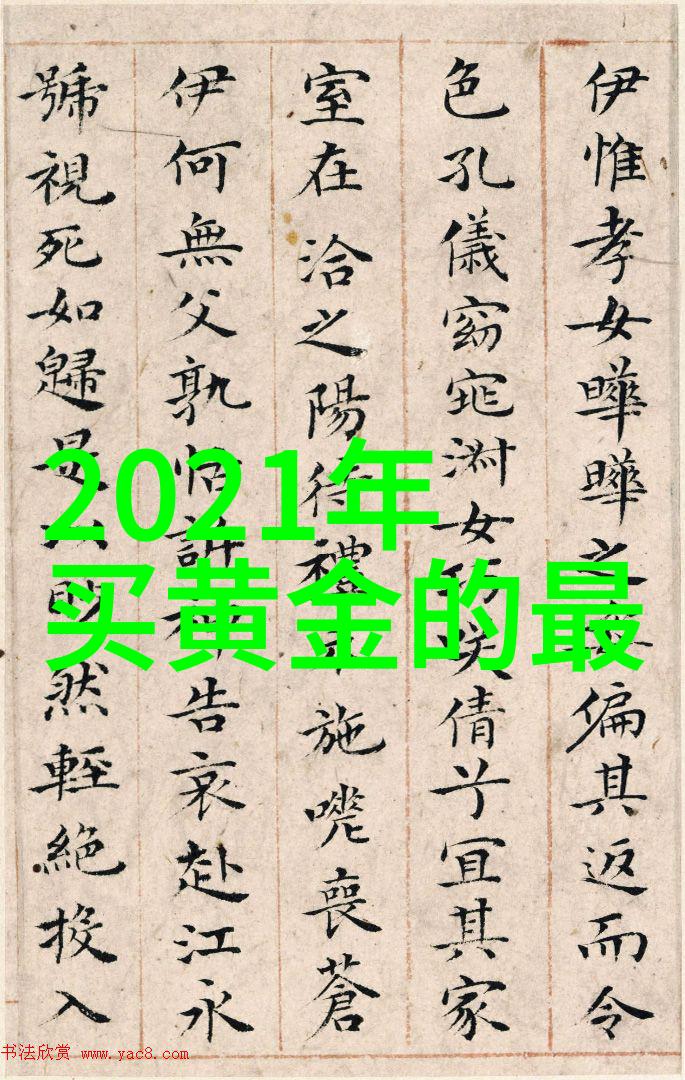 伊惟孝女曄曄之姿偏其返而令
色孔儀窈窕淑女巧笑倩兮宜其家
室在洽之陽待禮未施嗟喪蒼
伊何無父孰怙訴神告哀赴江永
號視死如歸是以眇然輕絕投入
2021年
买黄金的最
书法欣赏 www.yac8.com